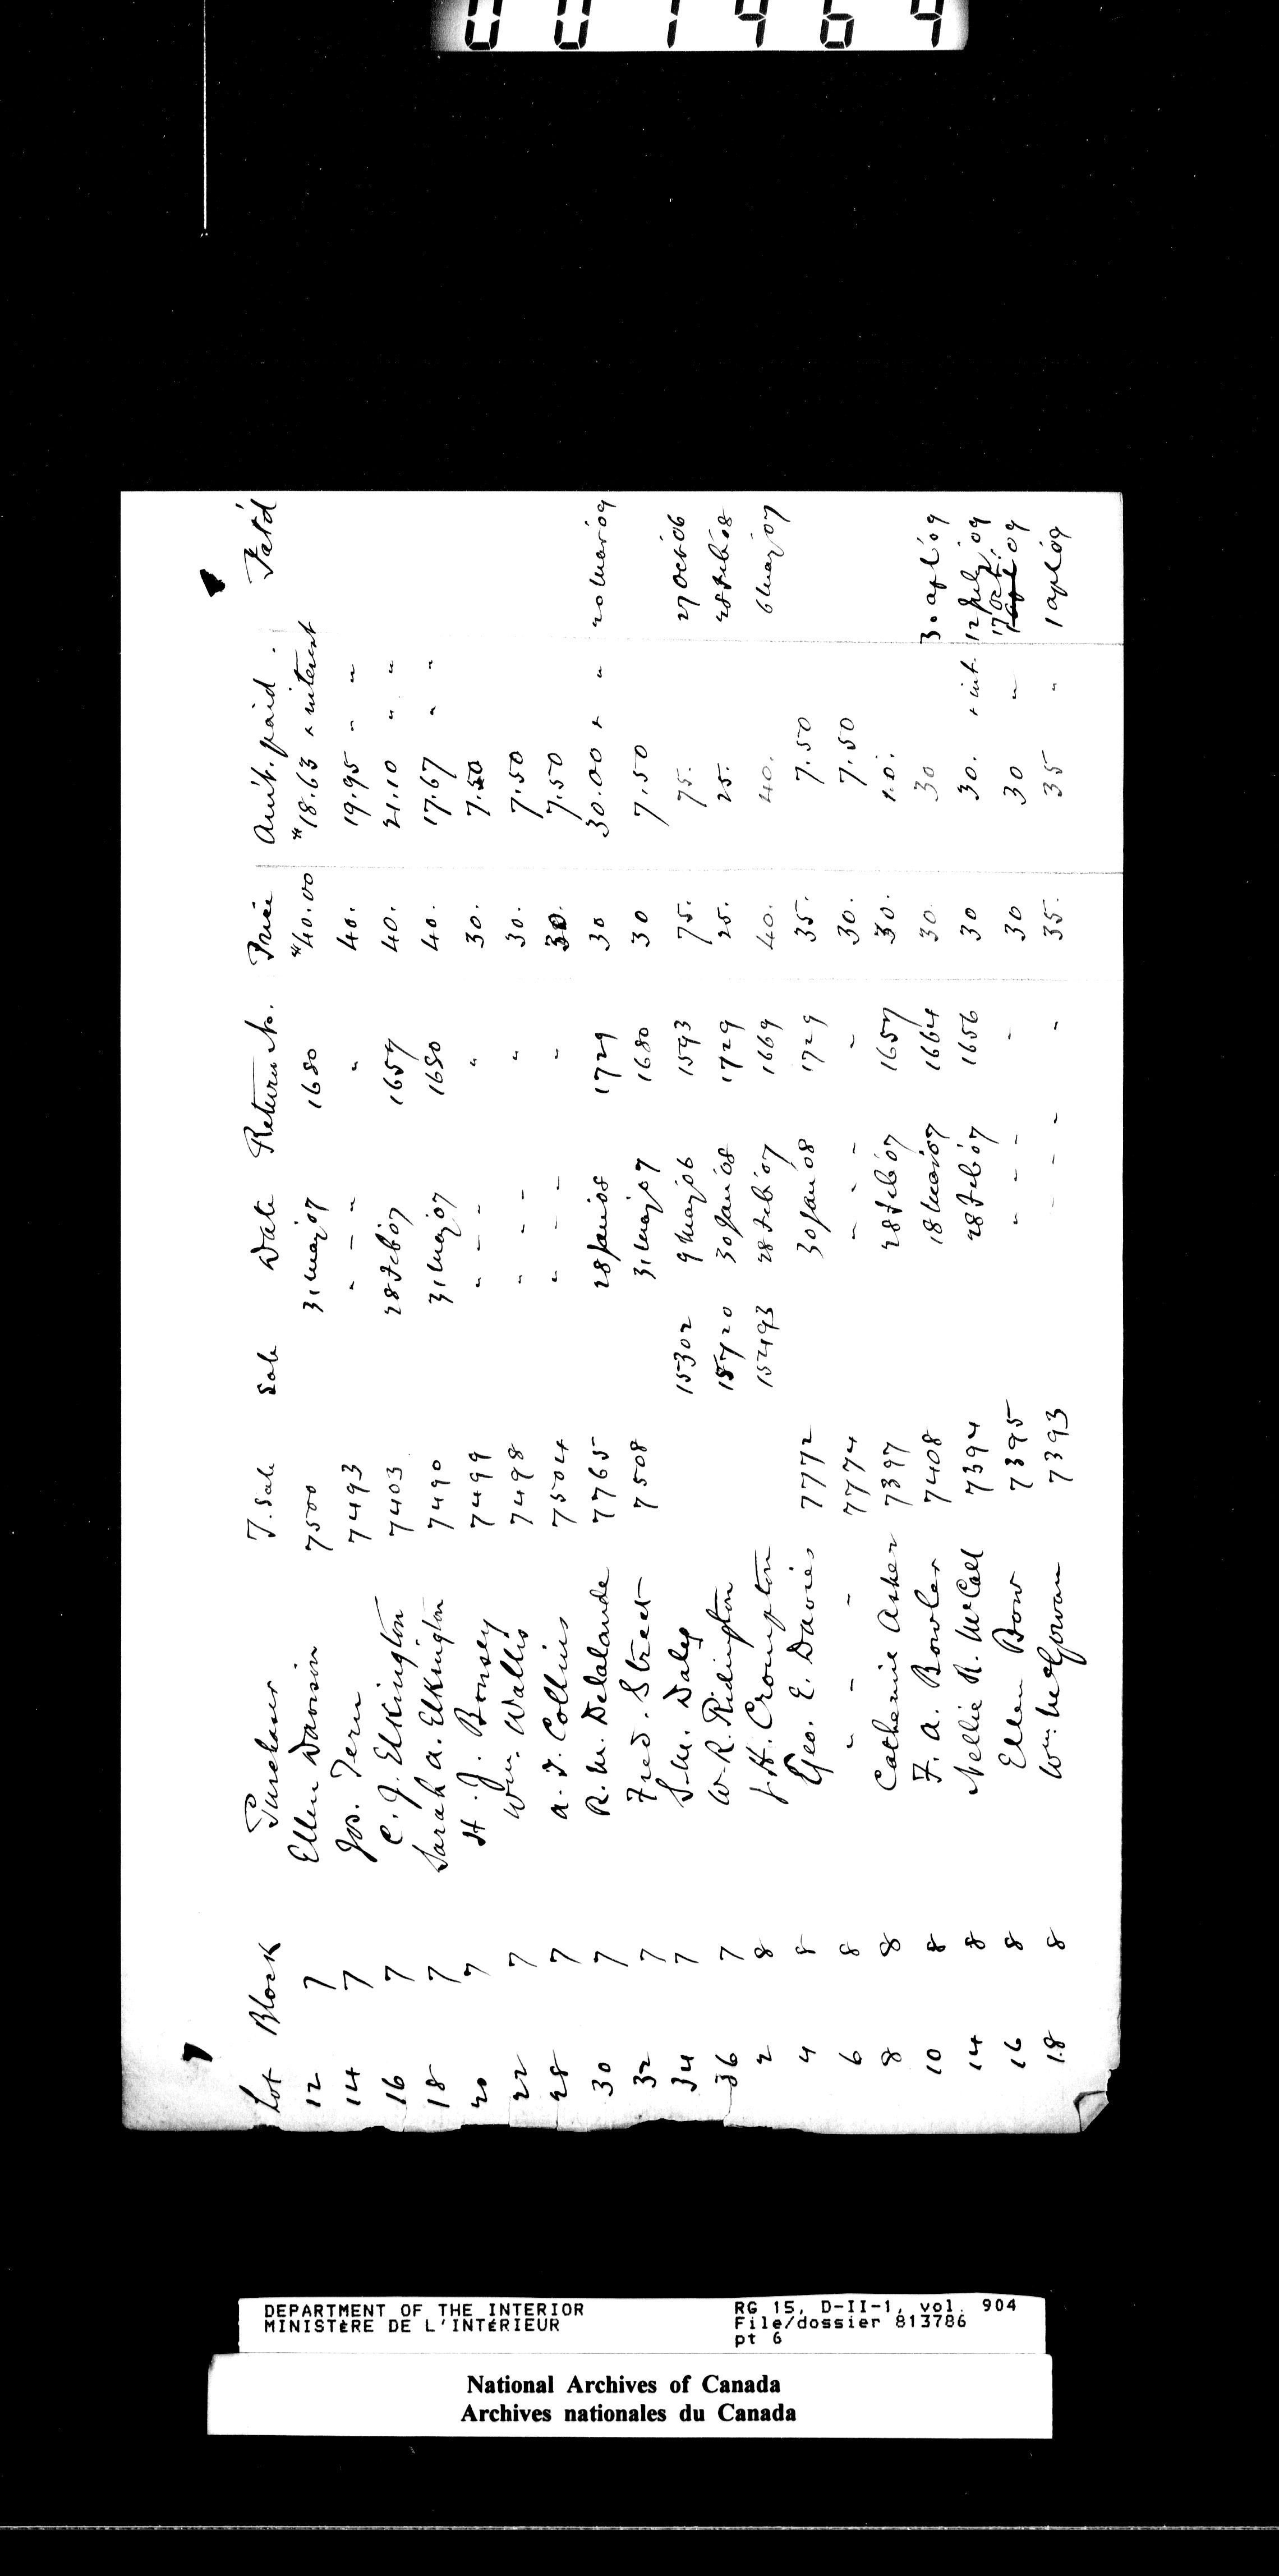 001464
Lot Block Purchaser T. Sale Sale Date Return No. Price Am't. paid. Pat'd
12 7 Ellen Davison 7500 31 May '07 1680 $40.00 $18.63 + interest
14 7 Jos. Tern 7493 " " " " 40. 19.95 " "
16 7 C. J. Elkington 7403 28 Feb '07 1657 40. 21.10 " "
18 7 Sarah A. Elkington 7490 31 May '07 1680 40. 17.67 " "
20 7 H. J. Bonsey 7499 " " " " 30. 7.50
22 7 Wm. Wallis 7498 " " " " 30. 7.50
28 7 A. T. Collins 7504 " " " " 30. 7.50
30 7 R. M. Delalande 7765 28 Jan '08 1729 30 30.00 + " 20 Mar '09
32 7 Fred. Street 7508 31 May '07 1680 30 7.50
34 7 S. M. Daly 15302 9 May '06 1593 75. 75. 27 Oct '06
36 7 W. R. Ridington 15720 30 Jan '08 1729 25. 25. 28 Feb '08
2 8 J. H. Crompton 15493 28 Feb '07 1669 40. 40. 6 May '07
4 8 Geo. E. Davies 7772 30 Jan '08 1729 35. 7.50
6 8 " " " 7774 " " " " 30. 7.50
8 8 Catherine Asher 7397 28 Feb '07 1657 30. 10.
10 8 F. A. Bowler 7408 18 Mar '07 1664 30. 30 30 apl '09
14 8 Nellie R. McCall 7394 28 Feb '07 1656 30 30. + int. 12 July '09
16 8 Ellen Bow 7395 " " " " 30 30 " 17 Oct. '09
18 8 Wm. McGowan 7393 " " " " 35. 35 " 1 apl '09
DEPARTMENT OF THE INTERIOR RG 15, D-II-1, vol. 904
MINISTÈRE DE L'INTÉRIEUR File/dossier 813786
pt 6
National Archives of Canada
Archives nationales du Canada